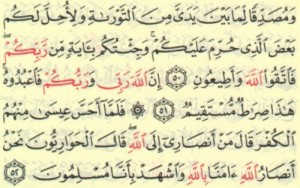 وَمُصَدِّقًا لِّمَا بَيْنَ يَدَيَّ مِنَ التَّوْرَىٰةِ وَلِأُحِلَّ لَكُم
بَعْضَ الَّذِى حُرِّمَ عَلَيْكُمْ ۚ وَجِئْتُكُم بِـَٔايَةٍ مِّن رَّبِّكُمْ
فَاتَّقُوا۟ اللَّهَ وَأَطِيعُونِ ۝٥٠ إِنَّ اللَّهَ رَبِّى وَرَبُّكُمْ فَاعْبُدُوهُ
هَٰذَا صِرَٰطٌ مُّسْتَقِيمٌ ۝٥١ ۞ فَلَمَّآ أَحَسَّ عِيسَىٰ مِنْهُمُ
الْكُفْرَ قَالَ مَنْ أَنصَارِىٓ إِلَى اللَّهِ ۖ قَالَ الْحَوَارِيُّونَ نَحْنُ
أَنصَارُ اللَّهِ ءَامَنَّا بِاللَّهِ وَاشْهَدْ بِأَنَّا مُسْلِمُونَ ۝٥٢